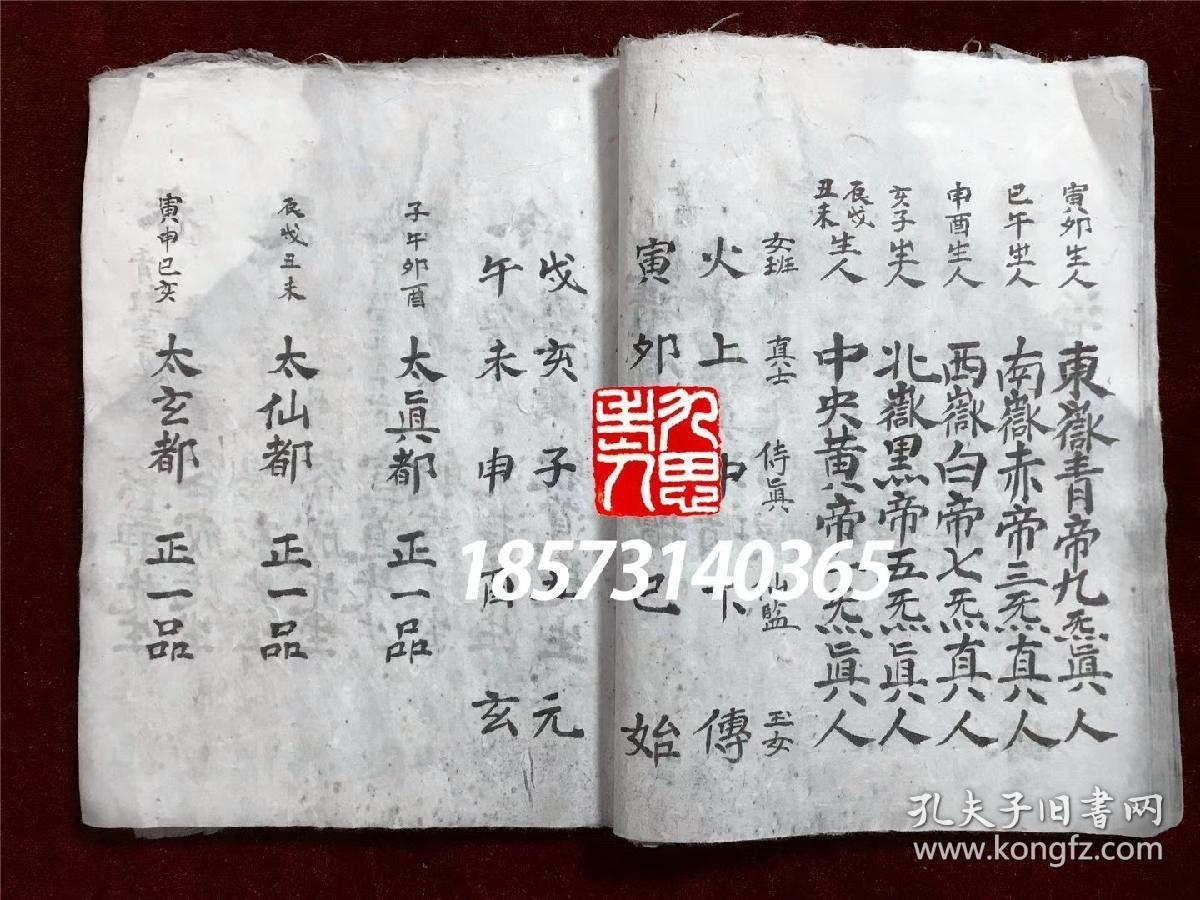 寅卯生人 東嶽青帝九炁眞人
巳午生人 南嶽赤帝三炁真人
申酉生人 西嶽白帝七炁真人
亥子生人 北嶽黑帝五炁眞人
辰戌丑未生人 中央黃帝 炁眞人
女班 真士 侍眞 監 玉女
火 上 中 下 傳
寅 卯 巳 始
戌 亥 子 元
午 未 申 酉 玄
子午卯酉 太眞都 正一品
辰戌丑未 太仙都 正一品
寅申巳亥 太玄都 正一品
18573140365
孔夫子旧书网
www.kongfz.com